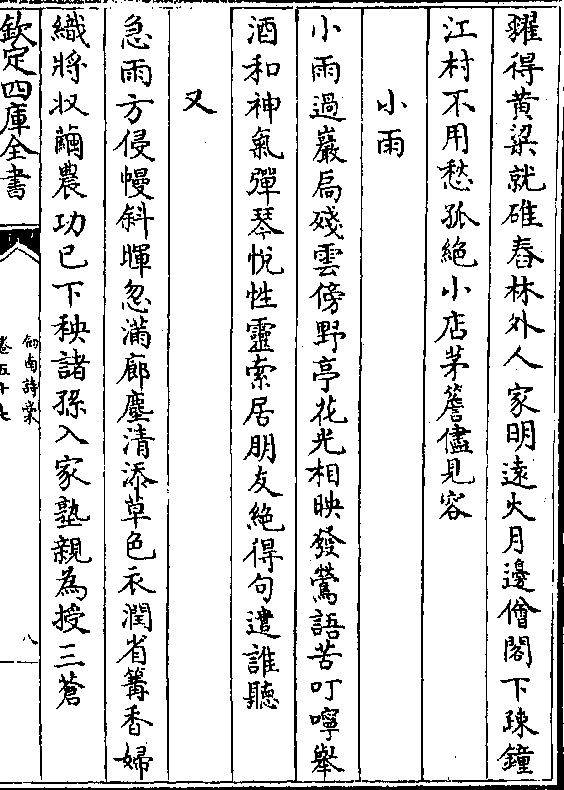 糴得黃粱就碓舂林外人家明遠火月邊僧閣下疎鐘
江村不用愁孤絶小店茅簷儘見容
小雨
小雨過巖扃殘雲傍野亭花光相映發鶯語苦叮嚀舉
酒和神氣彈琴悅性靈索居朋友絶得句遣誰聽
又
急雨方侵幔斜暉忽滿廊塵清添草色衣潤省篝香婦
織將収繭農功已下秧諸孫入家塾親為授三蒼
欽定四庫全書
劍南詩槀
卷五十七
八